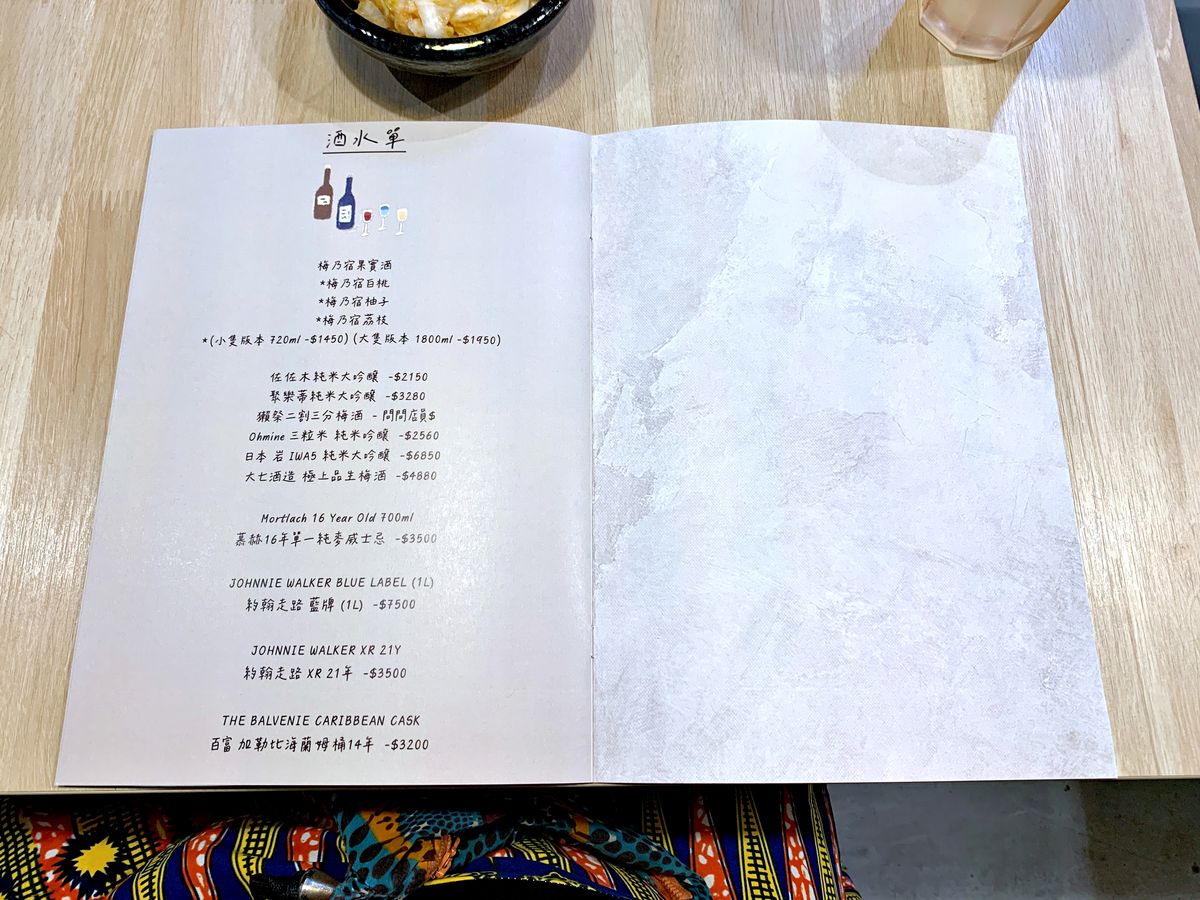 酒水單
梅乃宿果實酒
*梅乃宿白桃
*梅乃宿柚子
*梅乃宿荔枝
*(小隻版本 720ml -$1450) (大隻版本 1800ml -$1950)
佐佐木純米大吟釀 -$2150
聚樂蒂純米大吟釀 -$3280
獺祭二割三分梅酒 - 問問店員$
Ohmine 三粒米 純米吟釀 -$2560
日本 岩 IWA5 純米大吟釀 -$6850
大七酒造 極上品生梅酒 -$4880
Mortlach 16 Year Old 700ml
慕赫16年單一純麥威士忌 -$3500
JOHNNIE WALKER BLUE LABEL (1L)
約翰走路 藍牌 (1L) -$7500
JOHNNIE WALKER XR 21Y
約翰走路 XR 21年 -$3500
THE BALVENIE CARIBBEAN CASK
百富 加勒比海蘭姆桶14年 -$3200